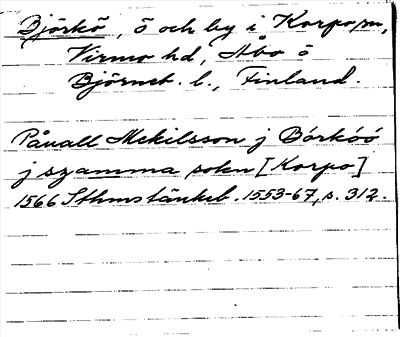 Björkö, ö och by i Korpo sn,
Virmo hd, Åbo o
Björneb. l., Finland.
Påuall Mekilsson j Börköö
j szamma sokn [Korpo]
1566 Sthmstänkeb. 1553-67, s. 312.